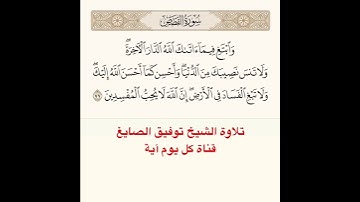 سُورَةُ القَصَصِ
وَٱبۡتَغِ فِيمَآ ءَاتَىٰكَ ٱللَّهُ ٱلدَّارَ ٱلۡأٓخِرَةَۖ
وَلَا تَنسَ نَصِيبَكَ مِنَ ٱلدُّنۡيَاۖ وَأَحۡسِن كَمَآ أَحۡسَنَ ٱللَّهُ إِلَيۡكَۖ
وَلَا تَبۡغِ ٱلۡفَسَادَ فِي ٱلۡأَرۡضِۖ إِنَّ ٱللَّهَ لَا يُحِبُّ ٱلۡمُفۡسِدِينَ ٧٧
تلاوة الشيخ توفيق الصايغ
قناة كل يوم أية